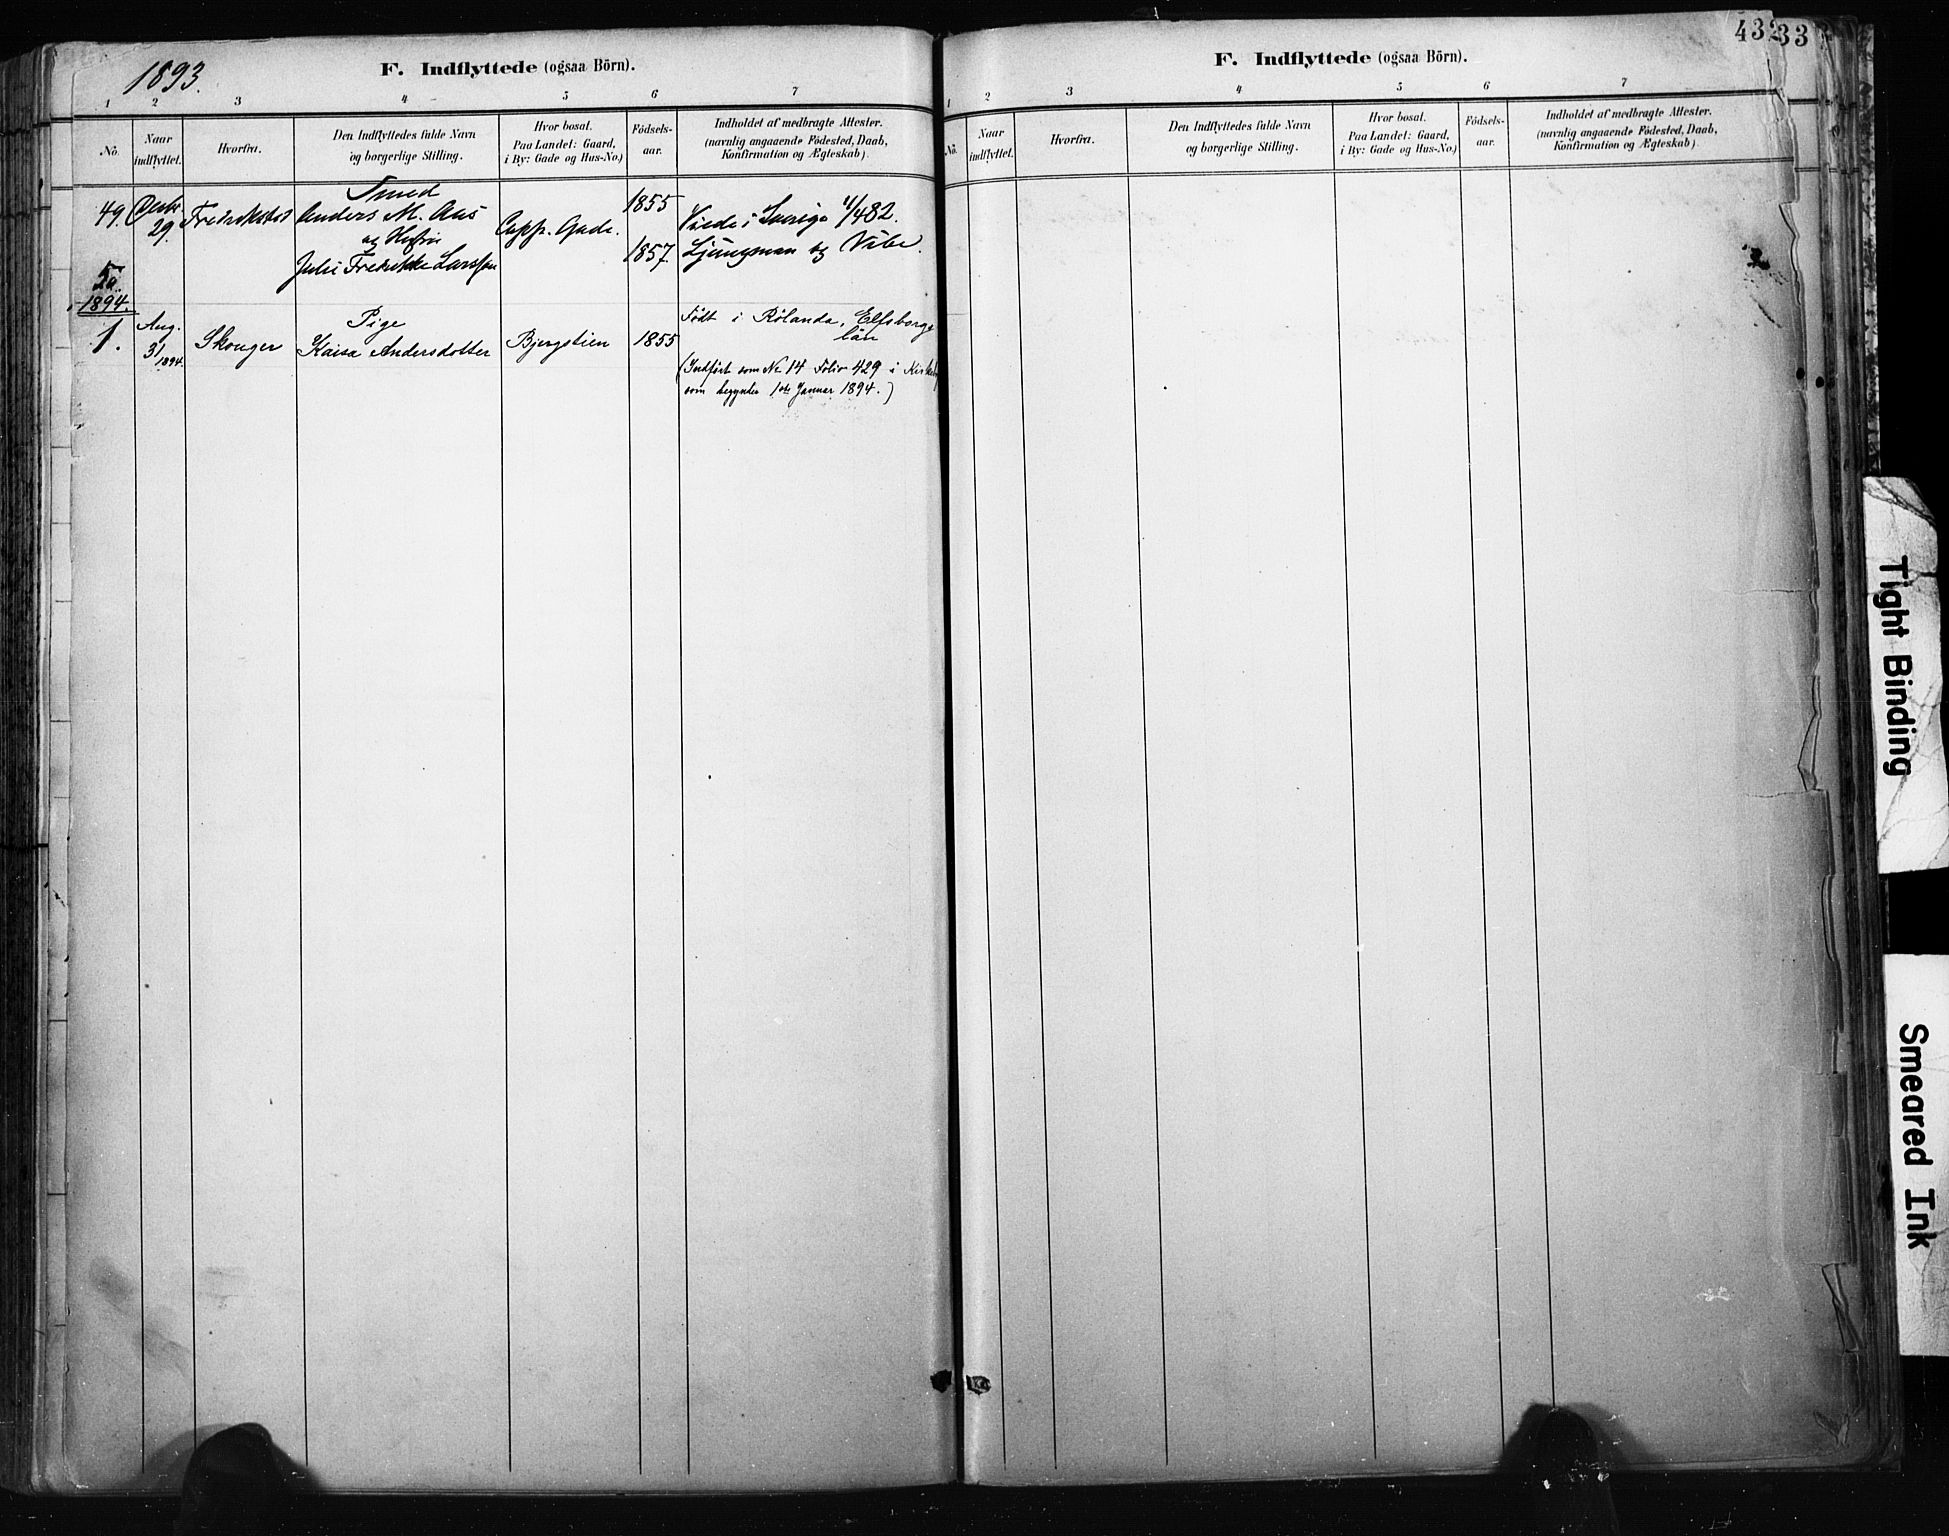 1893.
F. Indflyttede (ogsaa Börn).
1 2 3 4 5 6 7
No.
Naar indflyttet.
Hvorfra.
Den Indflyttedes fulde Navn
og borgerlige Stilling.
Hvor bosat.
Paa Landet: Gaard,
i By: Gade og Hus-No.)
Födsels-
aar.
Indholdet af medbragte Attester.
(navnlig angaaende Födested, Daab,
Konfirmation og Ægteskab).
49.
29.
Fredrikstad
Smed
Anders M. Aas
og Hustru
Julie Fredrikke Larssen
Capp. Gade.
1855
1857.
Viede i Sverige 11/4 82.
Ljungman og Vibe.
50.
1894.
1.
Aug.
31
1894.
Skouger
Pige
Kaisa Andersdotter
Bjergstien
1855
Födt i Rölanda, Elfsborgs
län
(Indført som No 14 Folio 429 i
som begynder 1ste Januar 1894.)
432
33
F. Indflyttede (ogsaa Börn).
1 2 3 4 5 6 7
No.
Naar
indflyttet.
Hvorfra.
Den Indflyttedes fulde Navn
og borgerlige Stilling.
Hvor bosat.
Paa Landet: Gaard,
i By: Gade og Hus-No.)
Födsels-
aar.
Indholdet af medbragte Attester.
(navnlig angaaende Födested, Daab,
Konfirmation og Ægteskab)
Tight Binding
Smeared Ink